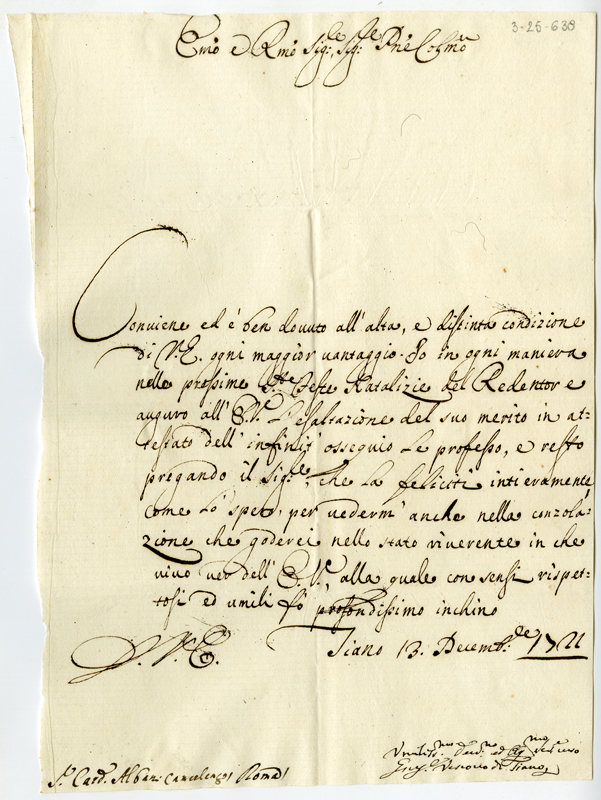 3-25-638
Emo e Rmo Sigre, Sigre Pne Colmo
Conviene ed è ben dovuto all' alta, e distinta condizione
di V.E. ogni maggior vantaggio. Io in ogni maniera
nelle prossime Ste Feste Natalizie del Redentore
auguro all' E.V. l'esaltazione del suo merito in at=
testato dell' infinit' ossequio le professo, e resto
pregando il Sigre, che la feliciti intieramente
come lo spero, per vederm' anche nella conzola=
zione che goderei nello stato riverente in che
vivo ver dell' E.V., alla quale con sensi rispet=
tosi ed umili fò profondissimo inchino
D. V. E. Tiano 13. Decembre 1721
Sr. Card. Albani Cancelengo Roma
Umiliss.mo ed servero
Vescovo di Tiano